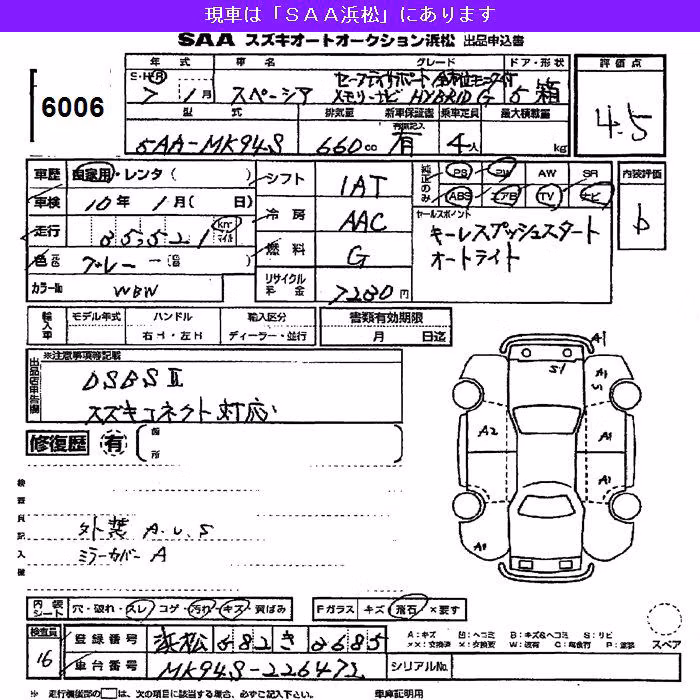 現車は「ＳＡＡ浜松」にあります
SAA スズキオートオークション浜松 出品申込書
6006
年式 車名 グレード ドア・形状 評価点
S・H・R 7 1月 スペーシア セーフティサポート 全方位モニタ付 メモリーナビ HYBRID G 5 箱
4.5
型式 排気量 新車保証書 有無記入 乗車定員 最大積載量
5AA-MK94S 660cc 有 4人 kg
車歴 自家用・レンタ( ) シフト IAT 純正のみ PS PW AW SR 内装評価
車検 10年 1月( 日) 冷房 AAC ABS エアB TV ナビ b
走行 85,521 km マイル
セールスポイント
キーレスプッシュスタート
オートライト
色 グレー 燃料 G
カラーNo WBW リサイクル料金 7280円
輸入車 モデル年式 ハンドル 輸入区分 書類有効期限
右H・左H ディーラー・並行 月 日迄
出品店申告欄 ※注意事項等記載
DSBSⅡ
スズキコネクト対応
修復歴 有 箇所
A1
S1
A1
U1
A2 A1
A1
A1
検査員記入欄
外装 A.U.S
ミラーカバー A
内装 シート 穴・破れ・スレ コゲ・汚れ・キズ・黄ばみ Fガラス キズ・飛石 ×要す
検査員 16
登録番号 浜松 582 き 2685
A：キズ U：ヘコミ B：キズ&ヘコミ S：サビ
スペア
車台番号 MK94S-226472 シリアルNo.
※ 走行機後部の は、次の項目に該当する場合、必ずご記入下さい。 車庫証明用